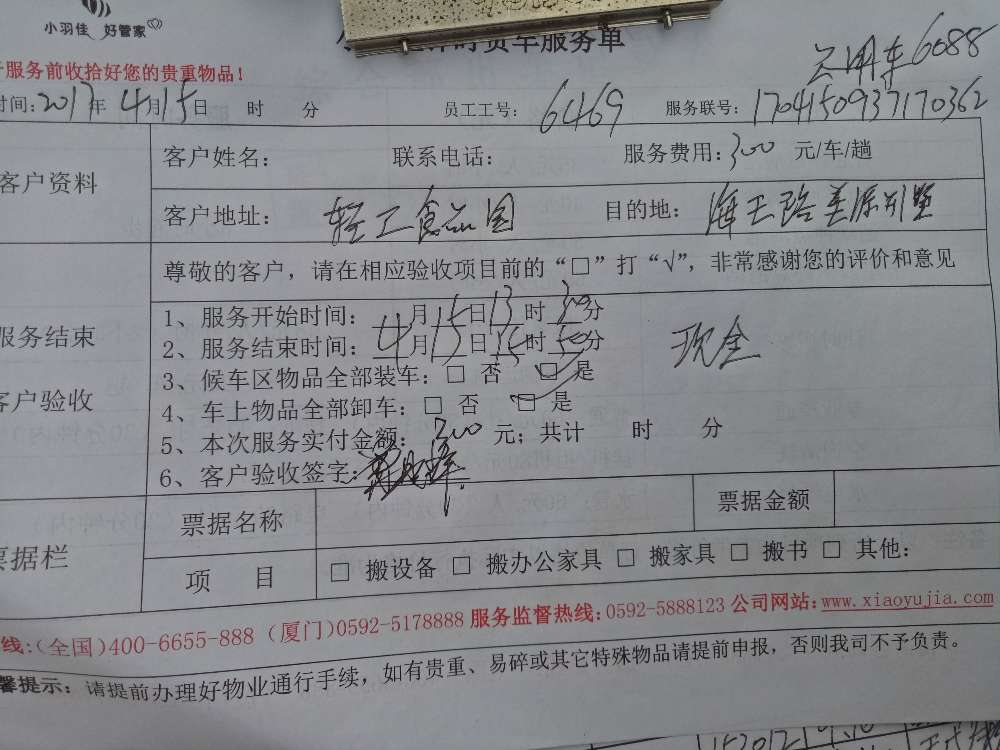 小羽佳 好管家
时货车服务单
公用车6088
服务前收拾好您的贵重物品！
时间：2017年4月15日 时 分 员工工号：6469 服务联号：1704150937170362
客户资料
客户姓名： 联系电话： 服务费用：300 元/车/趟
客户地址：轻工食品园 目的地：海天路美源别墅
尊敬的客户，请在相应验收项目前的“□”打“√”，非常感谢您的评价和意见
服务结束
客户验收
1、服务开始时间：4月15日13时30分
2、服务结束时间：4月15日15时50分
现金
3、候车区物品全部装车：□ 否 □ 是
4、车上物品全部卸车：□ 否 □ 是
5、本次服务实付金额：300 元；共计 时 分
6、客户验收签字：
票据栏
票据名称 票据金额
项 目 □ 搬设备 □ 搬办公家具 □ 搬家具 □ 搬书 □ 其他：
线:(全国)400-6655-888 (厦门)0592-5178888 服务监督热线:0592-5888123 公司网站:www.xiaoyujia.com
馨提示：请提前办理好物业通行手续，如有贵重、易碎或其它特殊物品请提前申报，否则我司不予负责。